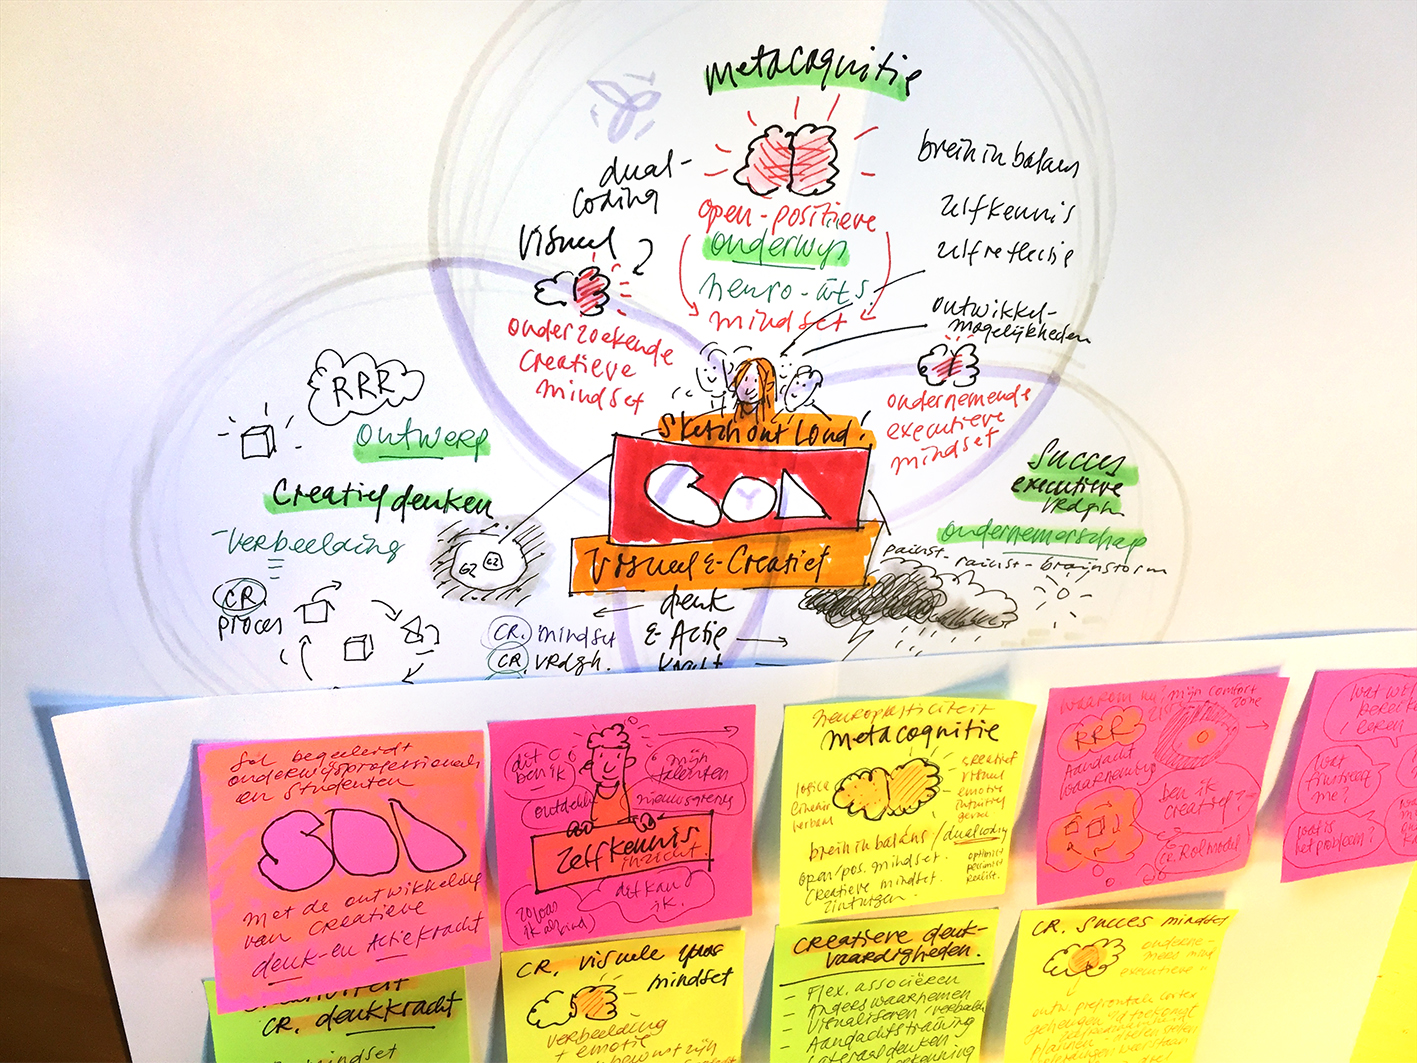 metacognitie
dual-
coding
visueel
onderzoekende
creatieve
mindset
open-positieve
onderwijs
neuro-
mindset
brein in balans
zelfkennis
zelfreflectie
ontwikkel-
mogelijkheden
ondernemende
executieve
mindset
RRR
ontwerp
Creatief denken
verbeelding
CR.
proces
Sketch out Loud.
SOL
Visueel & Creatief
denk
& Actie
kracht
CR. mindset
CR. vrdgh.
Succes
executieve
vrdgh
ondernemerschap
painst-
painst-brainstorm
Sol begeleidt
onderwijsprofessionals
en studenten
SOL
met de ontwikkeling
van creatieve
denk-en Actiekracht
dit
ben ik
mijn
talenten
ontdekken
nieuwsgierig
Zelfkennis
inzicht.
dit kan
ik.
zoals
ik
neuroplasticiteit
metacognitie
logica
lineair
verbaal
creatief
visueel
emotie
intuitief
gevoel
brein in balans / dualcoding
open/pos. mindset.
creatieve mindset.
zintuigen.
optimist
pessimist
realist.
waarom
mijn comfort
zone
RRR
Aandacht
waarneming
ben ik
creatief?
CR. Rolmodel
wat
me?
wat is
het probleem?
CR. denkkracht
mindset
CR. visuele
mindset
verbeelding
+ emotie
bewust zijn
creatieve denk-
vaardigheden.
- Flex. associëren
- Anders waarnemen
- Visualiseren/verbalis
- Aandachtstraining
- Lateraal denken
CR. succes mindset
onderne-
mend mind
executieve
ontw. prefrontale cortex
plannen - doelen stellen